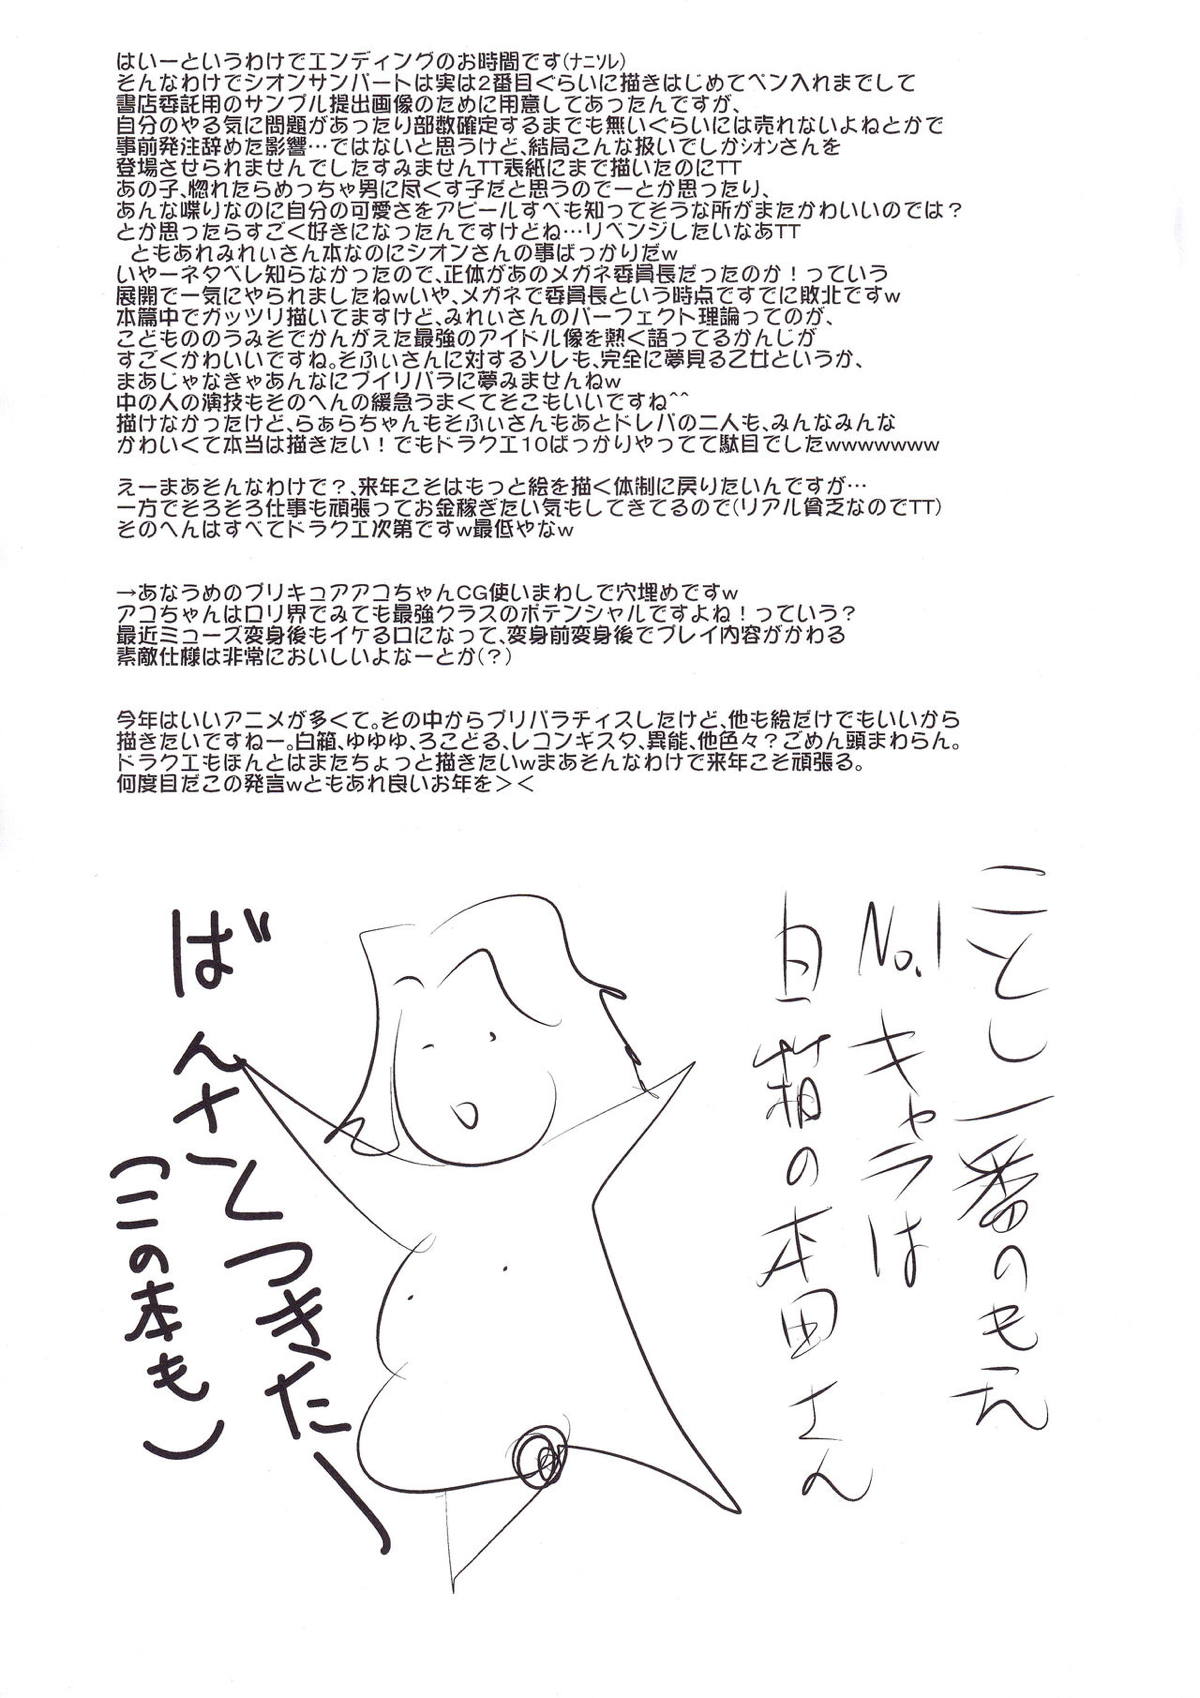 はいーというわけでエンディングのお時間です(ﾅﾆｿﾚ)
そんなわけでシオンサンパートは実は2番目ぐらいに描きはじめてペン入れまでして
書店委託用のサンプル提出画像のために用意してあったんですが、
自分のやる気に問題があったり部数確定するまでも無いぐらいには売れないよねとかで
事前発注辞めた影響…ではないと思うけど、結局こんな扱いでしかｼｵﾝさんを
登場させられませんでしたすみませんTT表紙にまで描いたのにTT
あの子、惚れたらめっちゃ男に尽くす子だと思うのでーとか思ったり、
あんな喋りなのに自分の可愛さをアピールすべも知ってそうな所がまたかわいいのでは？
とか思ったらすごく好きになったんですけどね…リベンジしたいなあTT
ともあれみれぃさん本なのにシオンさんの事ばっかりだw
いやーネタバレ知らなかったので、正体があのメガネ委員長だったのか！っていう
展開で一気にやられましたねwいや、メガネで委員長という時点ですでに敗北ですw
本篇中でガッツリ描いてますけど、みれぃさんのパーフェクト理論ってのが、
こどものうみそでかんがえた最強のアイドル像を熱く語ってるかんじが
すごくかわいいですね。そふぃさんに対するソレも、完全に夢見る乙女というか、
まあじゃなきゃあんなにプイリパラに夢みませんねw
中の人の演技もそのへんの緩急うまくてそこもいいですね^^
描けなかったけど、らぁらちゃんもそふぃさんもあとドレパの二人も、みんなみんな
かわいくて本当は描きたい！でもドラクエ10ばっかりやってて駄目でしたwwwwwww
えーまあそんなわけで？、来年こそはもっと絵を描く体制に戻りたいんですが…
一方でそろそろ仕事も頑張ってお金稼ぎたい気もしてきてるので(リアル貧乏なのでTT)
そのへんはすべてドラクエ次第ですw最低やなw
→あなうめのプリキュアアコちゃんCG使いまわしで穴埋めですw
アコちゃんはロリ界でみても最強クラスのポテンシャルですよね！っていう？
最近ミューズ変身後もイケる口になって、変身前変身後でプレイ内容がかわる
素敵仕様は非常においしいよなーとか(？)
今年はいいアニメが多くて。その中からプリパラチョイスしたけど、他も絵だけでもいいから
描きたいですねー。白箱、ゆゆゆ、ろこどる、レコンギスタ、異能、他色々？ごめん頭まわらん。
ドラクエもほんとはまたちょっと描きたいwまあそんなわけで来年こそ頑張る。
何度目だこの発言wともあれ良いお年を＞＜
ことし一番のもえ
No.1キャラは
白箱の本田さん
ばんさくつきたー
(この本も)